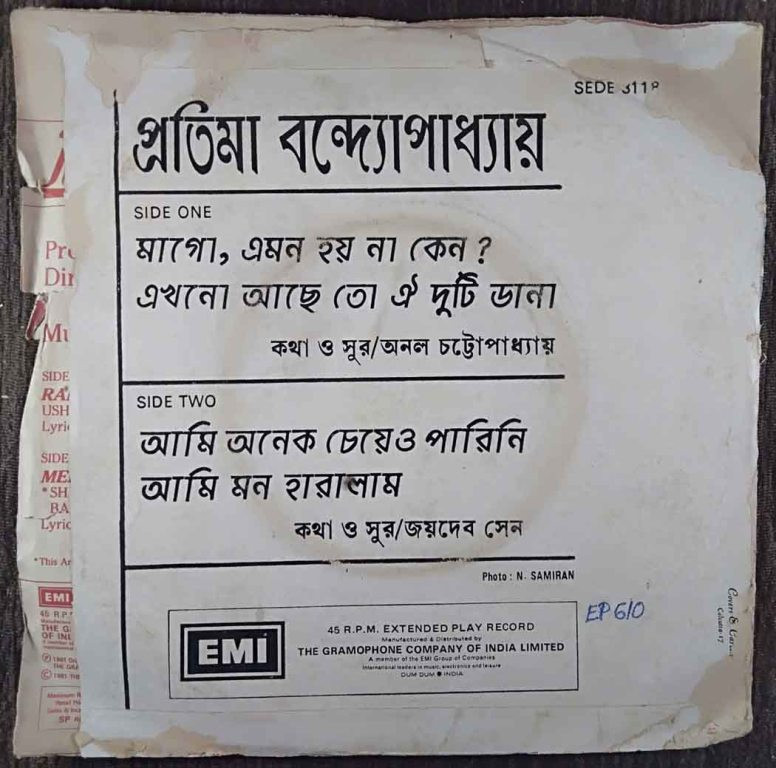 SEDE
প্রতিমা বন্দ্যোপাধ্যায়
SIDE ONE
মাগো, এমন হয় না কেন ?
এখনো আছে তো ঐ দুটি ডানা
কথা ও সুর/অনল চট্টোপাধ্যায়
SIDE TWO
আমি অনেক চেয়েও পারিনি
আমি মন হারালাম
কথা ও সুর/জয়দেব সেন
Photo : N. SAMIRAN
EP 610
EMI
45 R.P.M. EXTENDED PLAY RECORD
Manufactured & Distributed by
THE GRAMOPHONE COMPANY OF INDIA LIMITED
A member of the EMI Group of Companies
International leaders in music, electronics and leisure
DUM DUM INDIA
SIDE
USH
SIDE
*SH
*This
EMI
45 R.P.
THE G